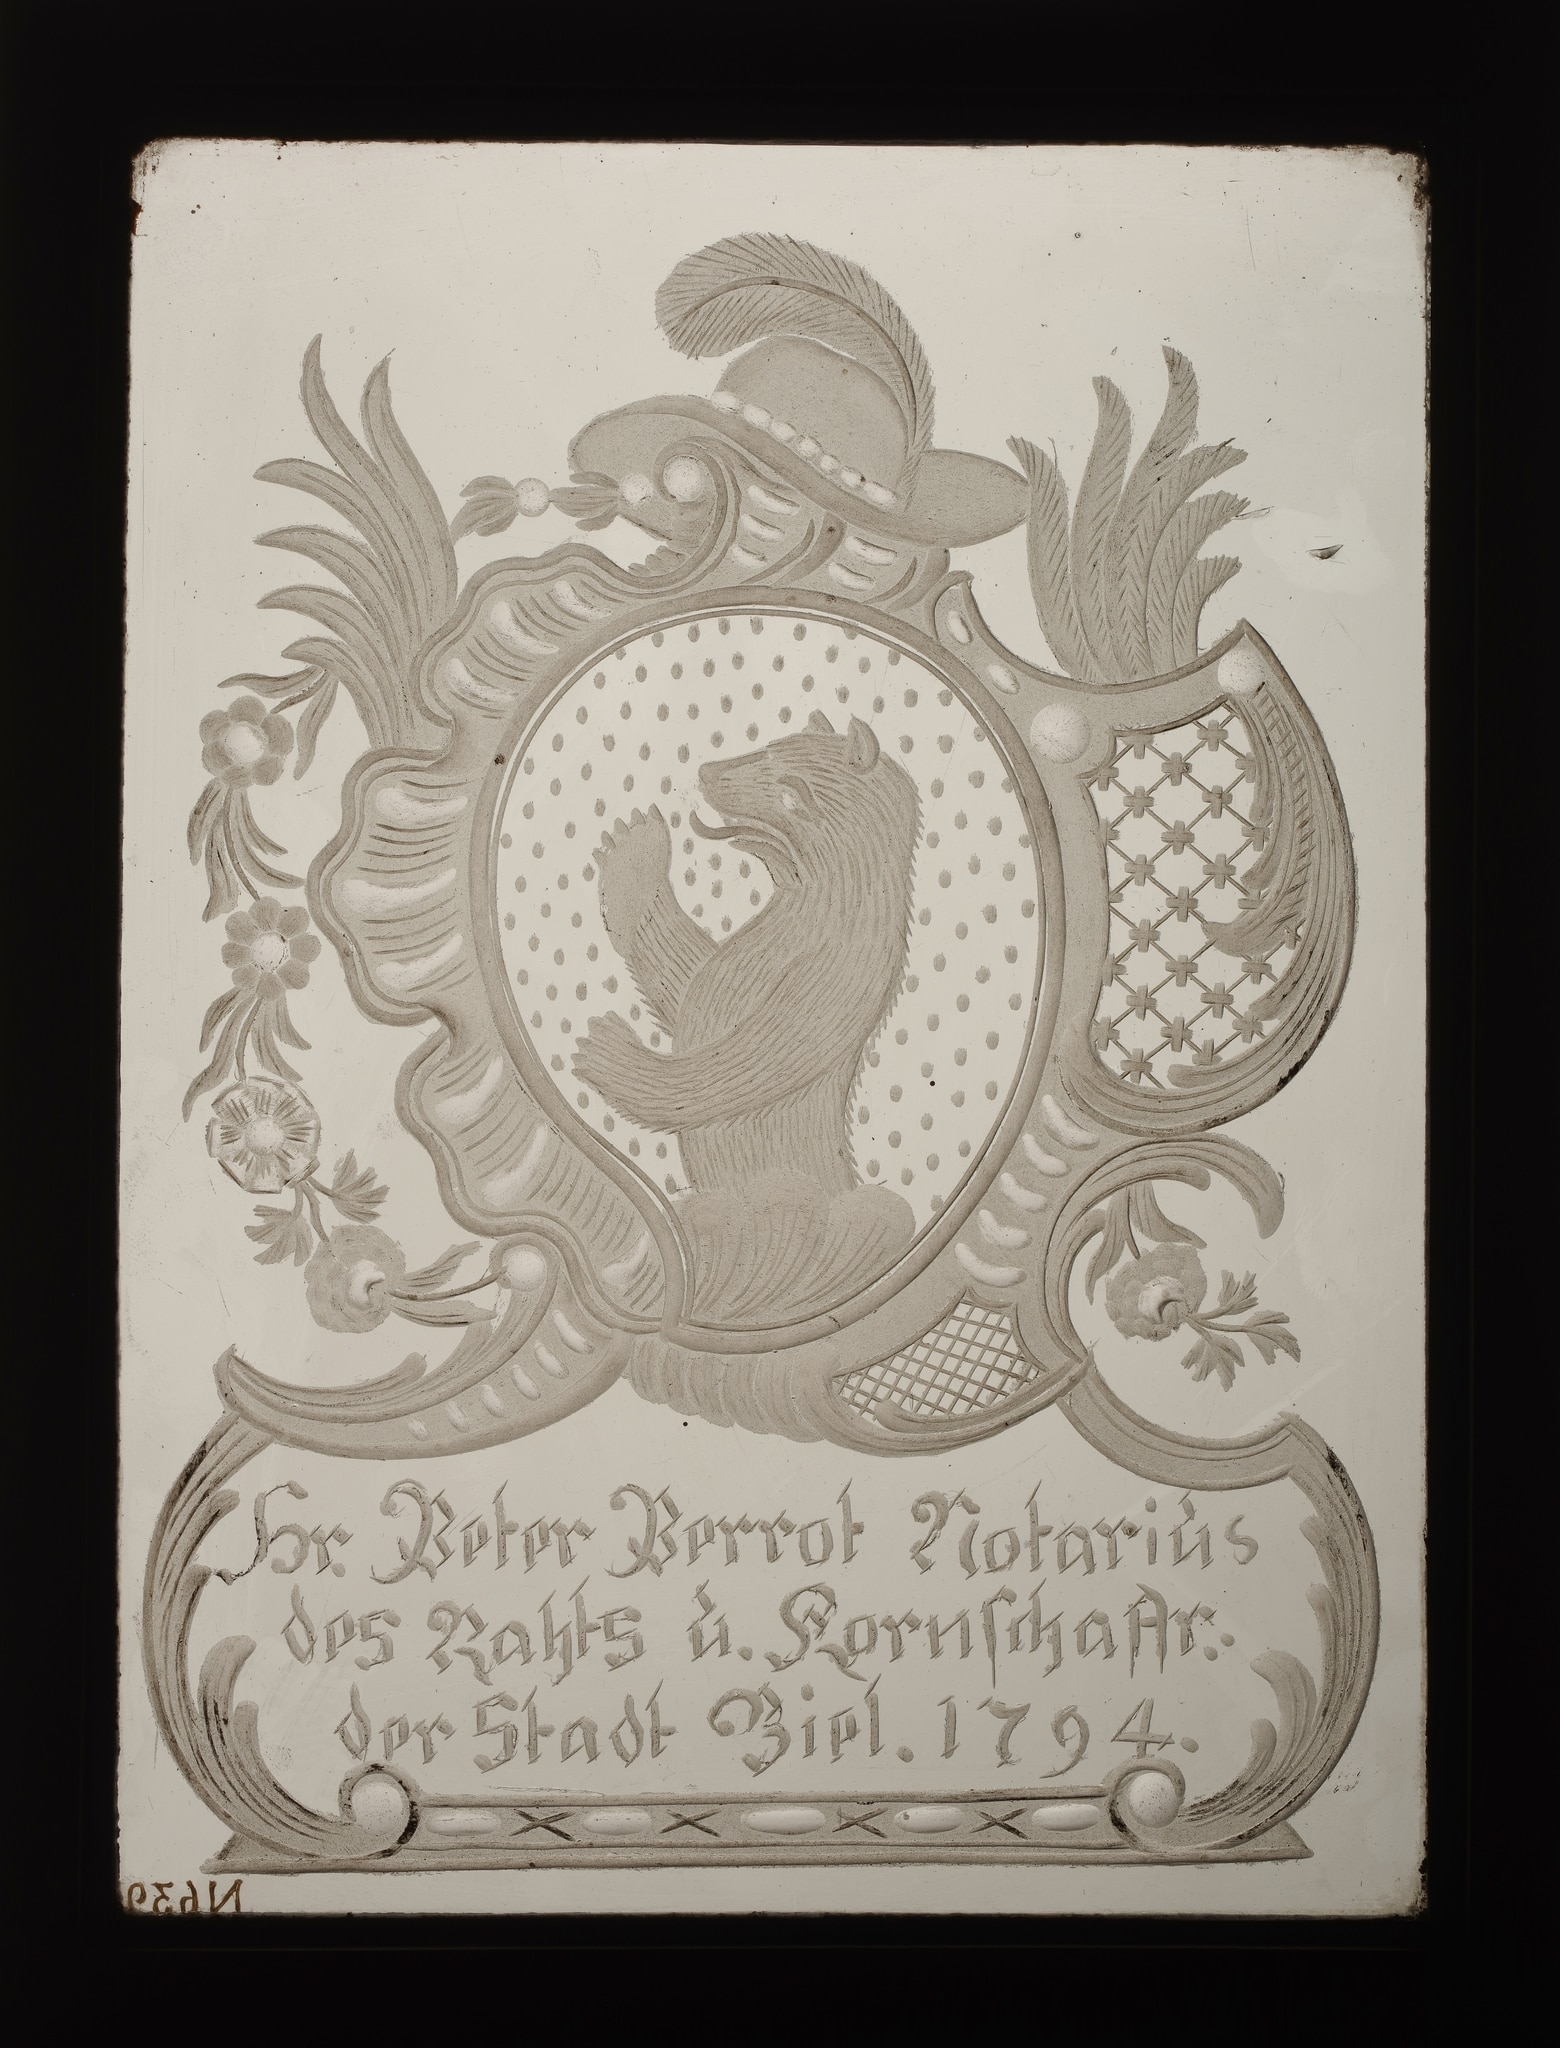 Hr. Peter Perrot Notariùs
des Rahts ù. Kornschaffr.
der Stadt Biel. 1794.
N639